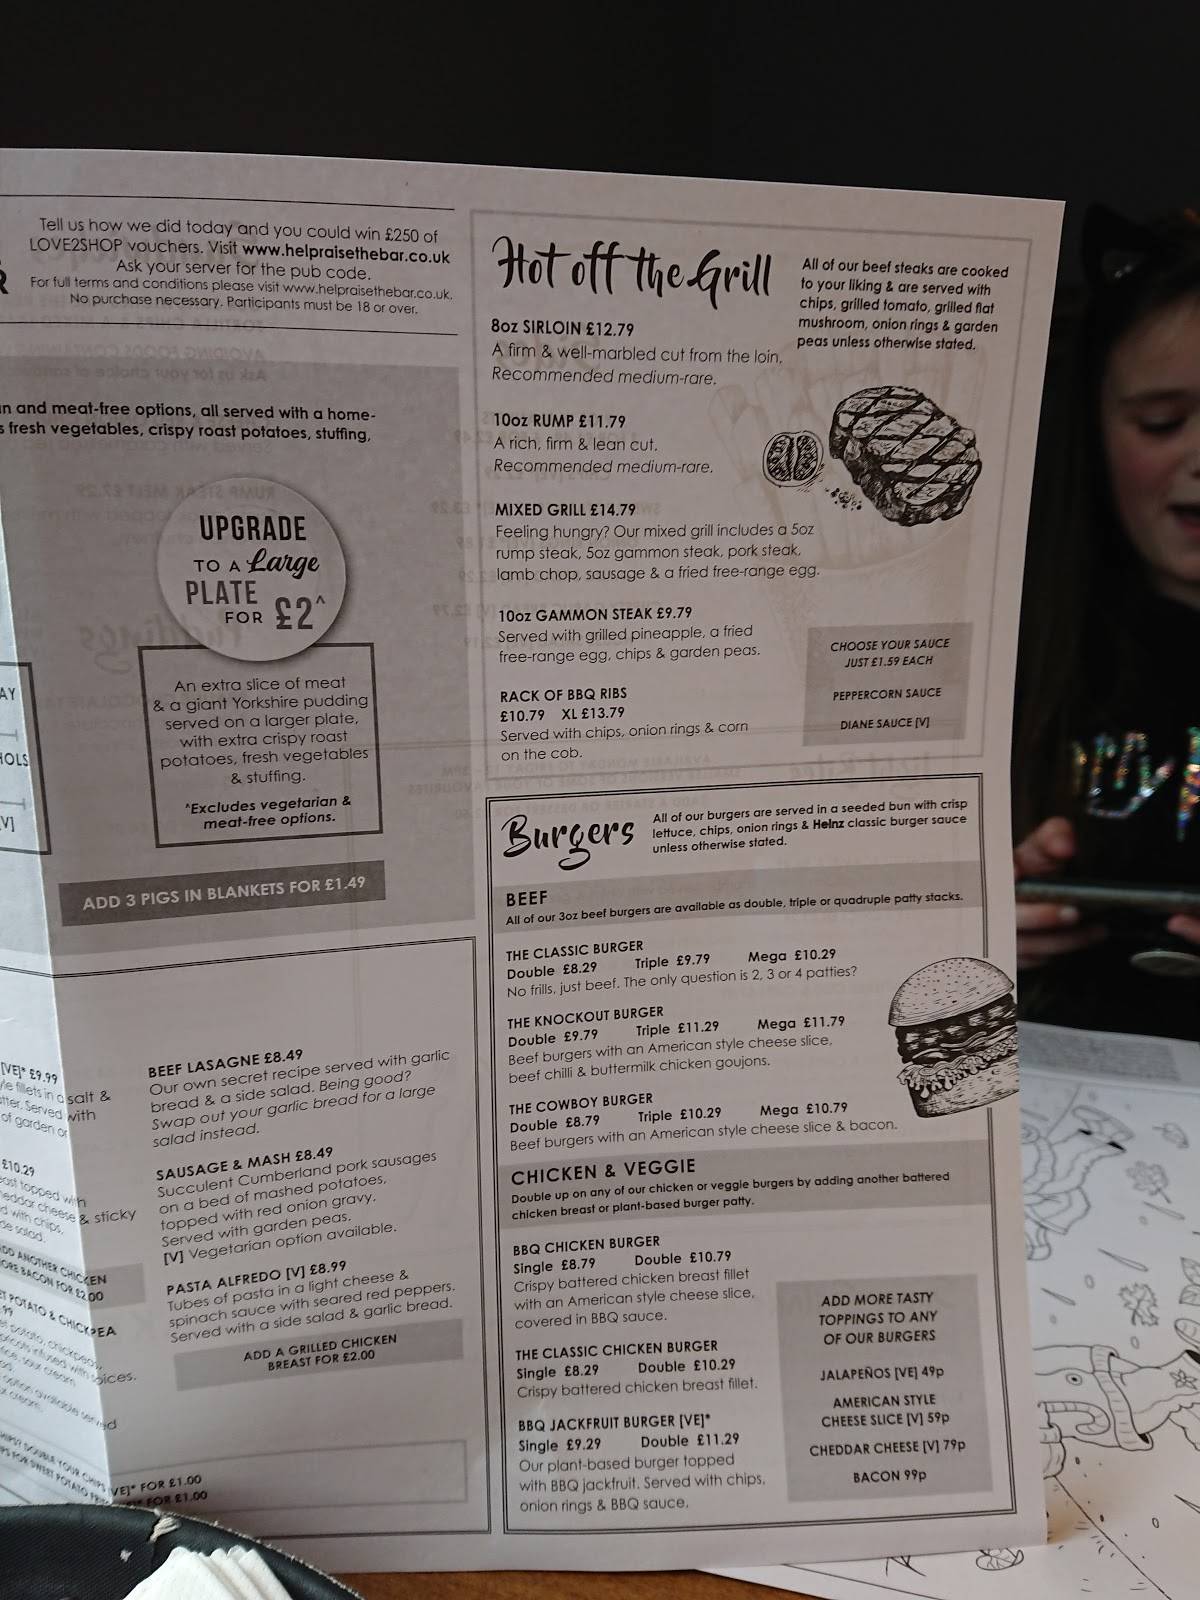 Tell us how we did today and you could win £250 of
LOVE2SHOP vouchers. Visit www.helpraisethebar.co.uk
Ask your server for the pub code.
For full terms and conditions please visit www.helpraisethebar.co.uk.
No purchase necessary. Participants must be 18 or over.
and meat-free options, all served with a home-
fresh vegetables, crispy roast potatoes, stuffing,
UPGRADE
TO A Large
PLATE
FOR £2^
An extra slice of meat
& a giant Yorkshire pudding
served on a larger plate,
with extra crispy roast
potatoes, fresh vegetables
& stuffing.
^Excludes vegetarian &
meat-free options.
ADD 3 PIGS IN BLANKETS FOR £1.49
[VE]* £9.99
fillets in a salt &
Served with
of garden or
£10.29
topped with
cheese & sticky
with chips,
salad.
ADD ANOTHER CHICKEN
BACON FOR £2.00
POTATO & CHICKPEA
potato, chickpeas,
infused with spices.
sour cream
option available served
cream.
DOUBLE YOUR CHIPS [VE]* FOR £1.00
FOR SWEET POTATO FOR £1.00
BEEF LASAGNE £8.49
Our own secret recipe served with garlic
bread & a side salad. Being good?
Swap out your garlic bread for a large
salad instead.
SAUSAGE & MASH £8.49
Succulent Cumberland pork sausages
on a bed of mashed potatoes,
topped with red onion gravy.
Served with garden peas.
[V] Vegetarian option available.
PASTA ALFREDO [V] £8.99
Tubes of pasta in a light cheese &
spinach sauce with seared red peppers.
Served with a side salad & garlic bread.
ADD A GRILLED CHICKEN
BREAST FOR £2.00
Hot off the Grill
All of our beef steaks are cooked
to your liking & are served with
chips, grilled tomato, grilled flat
mushroom, onion rings & garden
peas unless otherwise stated.
8oz SIRLOIN £12.79
A firm & well-marbled cut from the loin.
Recommended medium-rare.
10oz RUMP £11.79
A rich, firm & lean cut.
Recommended medium-rare.
MIXED GRILL £14.79
Feeling hungry? Our mixed grill includes a 5oz
rump steak, 5oz gammon steak, pork steak,
lamb chop, sausage & a fried free-range egg.
10oz GAMMON STEAK £9.79
Served with grilled pineapple, a fried
free-range egg, chips & garden peas.
RACK OF BBQ RIBS
£10.79 XL £13.79
Served with chips, onion rings & corn
on the cob.
CHOOSE YOUR SAUCE
JUST £1.59 EACH
PEPPERCORN SAUCE
DIANE SAUCE [V]
Burgers
All of our burgers are served in a seeded bun with crisp
lettuce, chips, onion rings & Heinz classic burger sauce
unless otherwise stated.
BEEF
All of our 3oz beef burgers are available as double, triple or quadruple patty stacks.
THE CLASSIC BURGER
Double £8.29 Triple £9.79 Mega £10.29
No frills, just beef. The only question is 2, 3 or 4 patties?
THE KNOCKOUT BURGER
Double £9.79 Triple £11.29 Mega £11.79
Beef burgers with an American style cheese slice,
beef chilli & buttermilk chicken goujons.
THE COWBOY BURGER
Double £8.79 Triple £10.29 Mega £10.79
Beef burgers with an American style cheese slice & bacon.
CHICKEN & VEGGIE
Double up on any of our chicken or veggie burgers by adding another battered
chicken breast or plant-based burger patty.
BBQ CHICKEN BURGER
Single £8.79 Double £10.79
Crispy battered chicken breast fillet
with an American style cheese slice,
covered in BBQ sauce.
THE CLASSIC CHICKEN BURGER
Single £8.29 Double £10.29
Crispy battered chicken breast fillet.
BBQ JACKFRUIT BURGER [VE]*
Single £9.29 Double £11.29
Our plant-based burger topped
with BBQ jackfruit. Served with chips,
onion rings & BBQ sauce.
ADD MORE TASTY
TOPPINGS TO ANY
OF OUR BURGERS
JALAPEÑOS [VE] 49p
AMERICAN STYLE
CHEESE SLICE [V] 59p
CHEDDAR CHEESE [V] 79p
BACON 99p